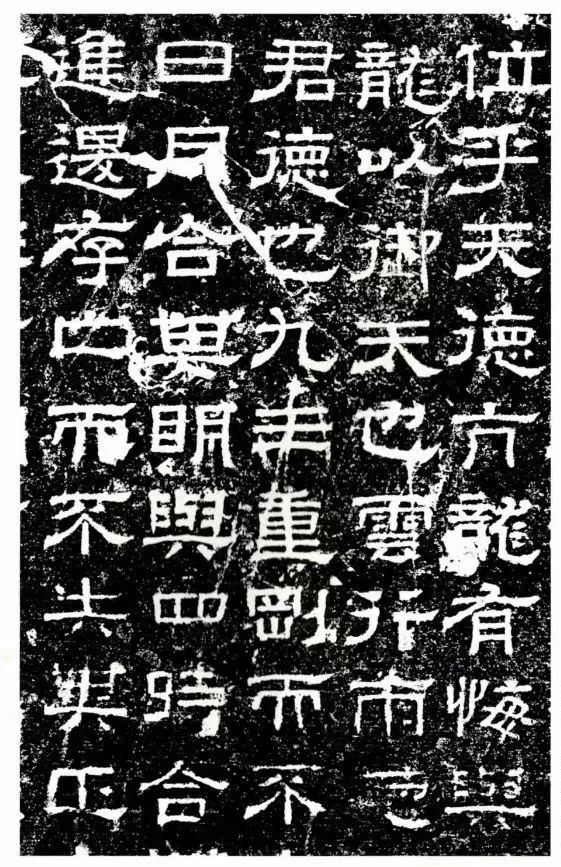 位乎天德亢龍有悔與
龍以御天也雲行雨
君德也九三重剛而不
日月合其明與四時合
進退存亡而不失其正